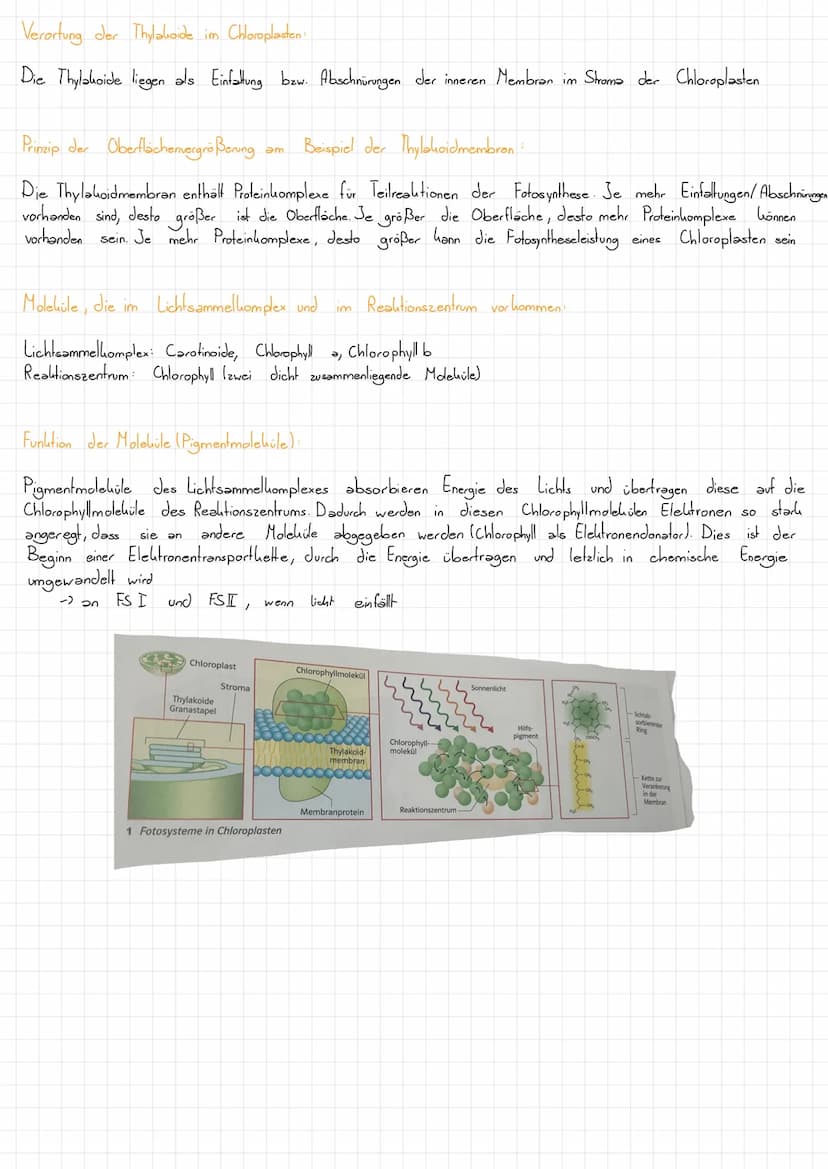 Verortung der Thylakoide im Chloroplasten:
Die Thylakoide liegen als Einfaltung bzw. Abschnürungen der inneren Membran im Stroma der Chloroplasten
Prinzip der Oberflächenvergrößerung am Beispiel der Thylakoidmembran:
Die Thylakoidmembran enthält Proteinkomplexe für Teilreaktionen der Fotosynthese. Je mehr Einfaltungen/Abschnürungen
vorhanden sind, desto größer ist die Oberfläche. Je größer die Oberfläche, desto mehr Proteinkomplexe können
vorhanden sein. Je mehr Proteinkomplexe, desto größer kann die Fotosyntheseleistung eines Chloroplasten sein
Moleküle, die im Lichtsammelkomplex und im Reaktionszentrum vorkommen:
Lichtsammelkomplex: Carotinoide, Chlorophyll a, Chlorophyll b
Reaktionszentrum: Chlorophyll (zwei dicht zusammenliegende Moleküle)
Funktion der Moleküle (Pigmentmoleküle):
Pigmentmoleküle des Lichtsammelkomplexes absorbieren Energie des Lichts und übertragen diese auf die
Chlorophyllmoleküle des Reaktionszentrums. Dadurch werden in diesen Chlorophyllmolekülen Elektronen so stark
angeregt, dass sie an andere Moleküle abgegeben werden (Chlorophyll als Elektronendonator). Dies ist der
Beginn einer Elektronentransportkette, durch die Energie übertragen und letzlich in chemische Energie
umgewandelt wird
-> an FS I und FS II, wenn licht einfällt
Chloroplast
Stroma
Thylakoide
Granastapel
Chlorophyllmolekül
Thylakoid-
membran
Membranprotein
Sonnenlicht
Chlorophyll-
molekül
Hilfs-
pigment
Reaktionszentrum
Ring
Kette zur
Verankerung
in der
Membran
1 Fotosysteme in Chloroplasten